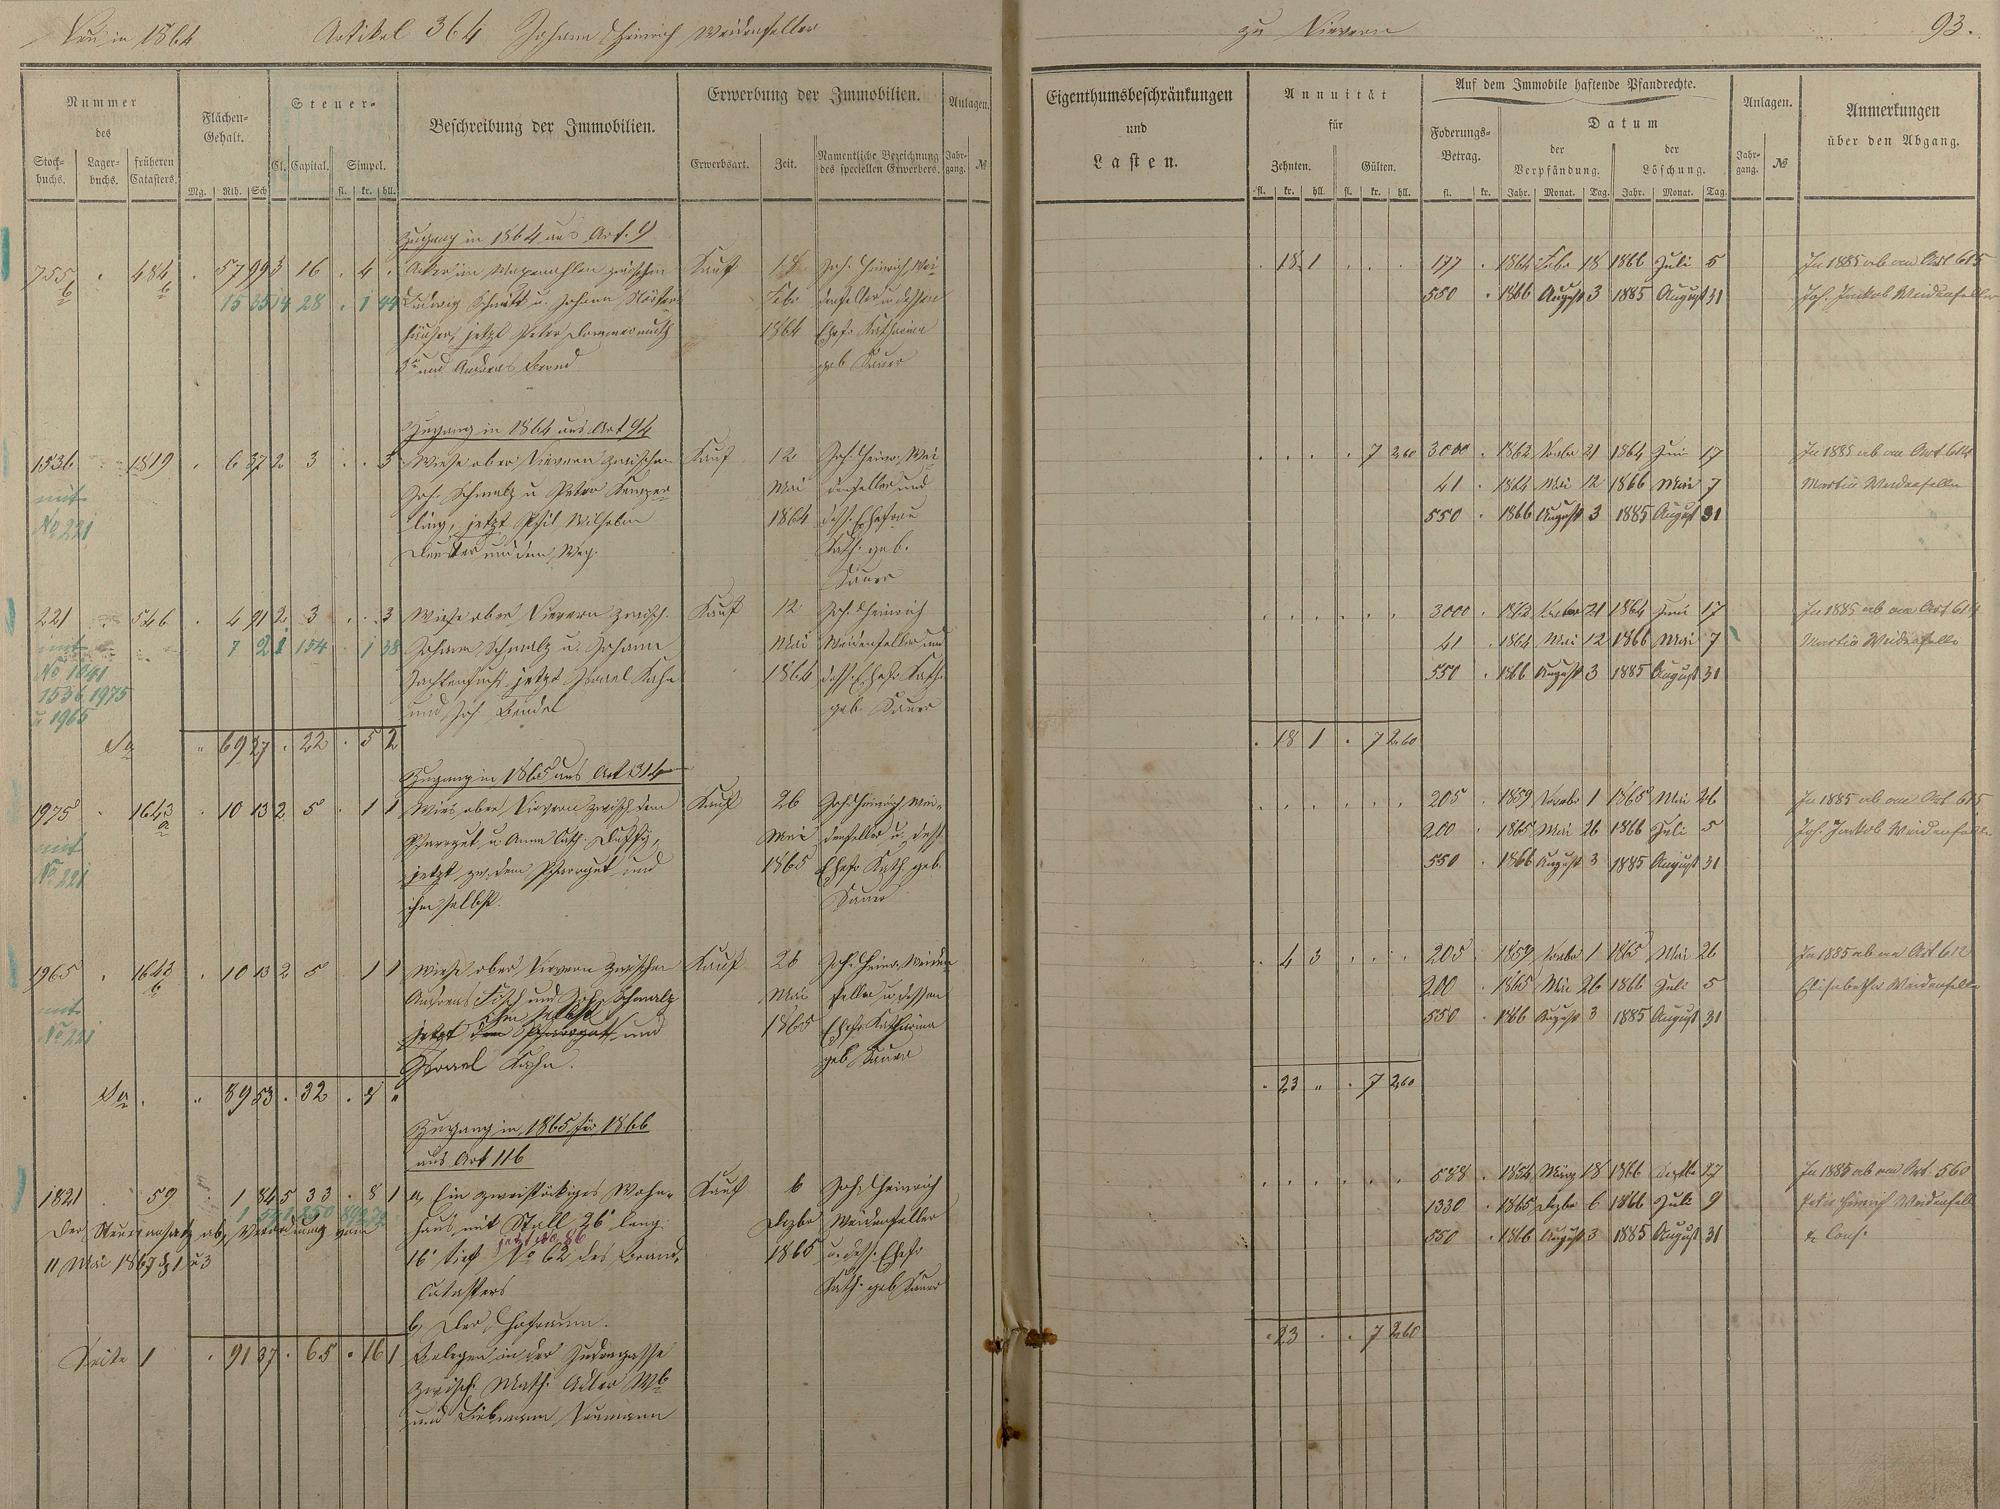 Neu in 1864 Artikel 364 Johann Heinrich Weidenfeller zu Nievern 93.
Nummer des
Stockbuchs. Lagerbuchs. früheren Catasters.
Flächen-Gehalt.
Mg. Rth. Sch
Steuer-
Cl. Capital. Simpel.
fl. kr. hll.
Beschreibung der Immobilien.
Erwerbung der Immobilien.
Erwerbsart. Zeit. Namentliche Bezeichnung des speciellen Erwerbers.
Anlagen.
Jahrgang. №
Eigenthumsbeschränkungen
und
Lasten.
Annuität
für
Zehnten. Gülten.
fl. kr. hll. fl. kr. hll.
Auf dem Immobile haftende Pfandrechte.
Foderungs-Betrag.
fl. kr.
Datum
der Verpfändung. der Löschung.
Jahr. Monat. Tag. Jahr. Monat. Tag.
Anlagen.
Jahrgang. №
Anmerkungen
über den Abgang.
Zugang in 1864 aus Art. 9
755 b . 484 b . 57 99 3 16 . 4 . Acker im zwischen Kauf 18 Joh. Heinrich Wei . 18 1 . . . 177 . 1864 Febr 18 1866 Juli 5 In 1885 ab an Art 615
15 35 14 28 . 1 44 Ludwig Schmitt u. Johann Febr denfeller u. dessen 550 . 1866 August 3 1885 August 31 Joh. Jakob Weidenfeller
jetzt Peter Dommermuth 1864 Ehefr Katharina
und Andreas geb Sauer
Zugang in 1864 aus Art 94
1536 . 1819 . 6 37 2 3 . . 3 Wiese ober Nievern zwischen Kauf 12 Joh. Heinr. Wei . . . . 7 2,60 3000 . 1862 Novbr 21 1864 Juni 17 In 1885 ab an Art 614
mit Joh. Schmalz u Peter Kemper Mai denfeller und 41 . 1864 Mai 12 1866 Mai 7 Martin Weidenfeller
No 221 ling, jetzt Phil. Wilhelm 1864 dess. Ehefrau 550 . 1866 August 3 1885 August 31
und dem Weg. Kath. geb.
Sauer
221 . 546 . 4 91 2 3 . . 3 Wiese ober Nievern zwisch. Kauf 12 Joh. Heinrich . . . . . . 3000 . 1862 Novbr 21 1864 Juni 17 In 1885 ab an Art 614
mit 7 2 1 154 . 1 38 Johann Schmalz u. Johann Mai Weidenfeller und 41 . 1864 Mai 12 1866 Mai 7 Martin Weidenfeller
No 1841 jetzt Israel Kahn 1864 dess. Ehefr Kath. 550 . 1866 August 3 1885 August 31
1536 1975 und Joh. geb. Sauer
u 1965
Sa " 69 27 . 22 . 5 2 . 18 1 . 7 2,60
Zugang in 1865 aus Art 314
1975 . 1643 a . 10 13 2 5 . 1 1 Wies ober Nievern zwisch dem Kauf 26 Joh. Heinrich Wei- . . . . . . 205 . 1859 Novbr 1 1865 Mai 26 In 1885 ab an Art 615
mit Pfarrgut u Anna Cath. Mai denfeller u. dess. 200 1865 Mai 26 1866 Juli 5 Joh. Jackob Weidenfeller
No 221 jetzt zw. dem Pfarrgut und 1865 Ehefr Kath. geb. 550 . 1866 August 3 1885 August 31
ihm selbst. Sauer
1965 . 1643 b . 10 13 2 5 . 1 1 Wiese ober Nievern zwischen Kauf 26 Joh. Heinr. Weiden . 4 3 . . . 205 . 1859 Novbr 1 1865 Mai 26 In 1885 ab an Art 612
mit Andreas Fisch und Joh. Schmalz Mai feller u. dessen 200 . 1865 Mai 26 1866 Juli 5 Elisabetha Weidenfeller
ihm selbst
No 221 jetzt dem Pfarrgut und 1865 Ehefr Katharina 550 . 1866 August 3 1885 August 31
Israel Kahn. geb Sauer
Sa . " 89 53 . 32 . 7 " . 23 " . 7 2,60
Zugang in 1865 für 1866
aus Art 116
1821 59 . 1 84 5 33 . 8 1 a, Ein zweistöckiges Wohn- Kauf 6 Joh. Heinrich . . . . . . 588 . 1854 März 18 1866 27 In 1885 ab an Art. 560
Der Steueransatz ab, Verordnung vom haus mit Stall 26' lang Dezbr Weidenfeller 1330 . 1865 Dezbr 6 1866 Juli 9 Peter Heinrich Weidenfeller
jetzt No 86
11 Mai 1867 § 1 u 3 16' tief No 62 des Brand- 1865 u. dess. Ehefr 550 . 1866 August 3 1885 August 31 & Cons.
Catasters Kath. geb Sauer
b, Der Hofraum.
Seite 1 . 91 37 . 65 . 16 1 Gelegen in der Judengasse . 23 . . 7 2,60
zwisch. Math. Adler Wb
und Liebmann Neumann